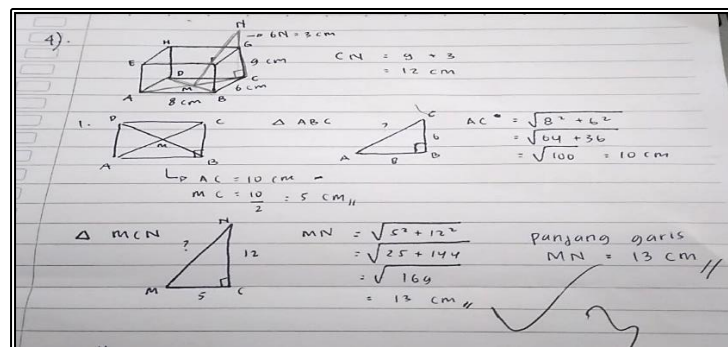 4).
N → GN = 3 cm
H G
E 9 cm
D C
M 6 cm
A 8 cm B
CN = 9 + 3
= 12 cm
1. D C
M
A B
Δ ABC
C
? 6
A 8 B
AC = √8² + 6²
= √64 + 36
= √100 = 10 cm
↳ AC = 10 cm
MC = 10/2 = 5 cm //
Δ MCN
N
? 12
M 5 C
MN = √5² + 12²
= √25 + 144
= √169
= 13 cm //
Panjang garis
MN = 13 cm //